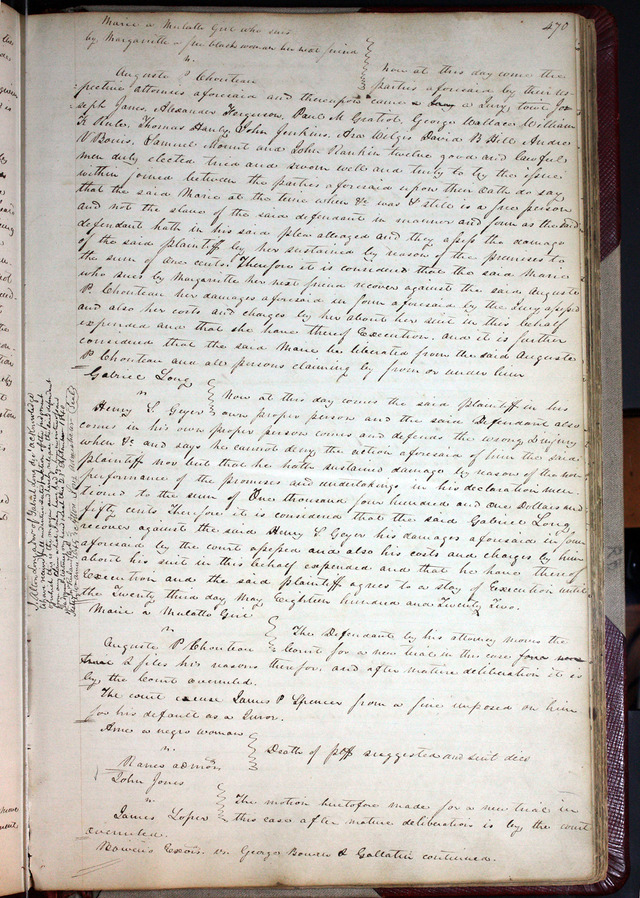 470
Marie a Mulatto Girl who sues
by Margarritte a free black woman her next friend
v.
Auguste P Chouteau
Now at this day come the
parties aforesaid by their res-
pective attornies aforesaid and thereupon came a Jury, towit Jo-
seph Janes, Alexander Ferguson, Paul M Gratiot, George Wallace William
K Rule, Thomas Hanly, John Jenkins, Asa Wilgis David B Hill Andre
V Bouis, Samuel Mount and John Rankin twelve good and lawful
men duly elected tried and sworn well and truly to try the issue
within joined between the parties aforesaid upon their Oath do say
that the said Marie at the time when &c was & still is a free person
and not the slave of the said defendant in manner and form as the said
defendant hath in his said plea alleaged and they assess the damage
of the said plaintiff by her sustained by reason of the premises to
the sum of one cents. Therefore it is considered that the said Marie
who sues by Margarritte her next friend recover against the said Auguste
P. Chouteau her damages aforesaid in form aforesaid by the Jury assessed
and also her costs and charges by her about her suit in this behalf
expended and that she have thereof Execution. and it is further
considered that the said Marie be liberated from the said Auguste
P Chouteau and all persons claiming by from or under him
Gabriel Long
v.
Henry S. Geyer
Now at this day comes the said plaintiff in his
own proper person and the said Defendant also
comes in his own proper person comes and defends the wrong & injury
when &c and says he cannot deny the action aforesaid of him the said
plaintiff nor but that he hath sustained damage by reason of the non
performance of the promises and undertakings in his declaration men-
tioned to the sum of One thousand four hundred and one Dollars and
fifty cents Therefore it is considered that the said Gabriel Long
recover against the said Henry S. Geyer his damages aforesaid in form
aforesaid by the court assessed and also his costs and charges by him
about his suit in this behalf expended and that he have thereof
Execution and the said plaintiff agrees to a stay of Execution until
the Twenty third day May Eighteen hundred and Twenty Two.
Marie a Mulatto Girl
v.
Auguste P. Chouteau
The Defendant by his attorney moves the
Court for a new trial in this case
& files his reasons therefor. and after mature deliberation it is
by the Court overruled.
The court excuse James P Spencer from a fine imposed on him
for his default as a Juror.
Ame a negro woman
v.
admor
Death of ptff suggested and suit dies
John Jones
v.
James Loper
The motion heretofore made for a new trial in
this case after mature deliberation is by the court
overruled.
Exors. vs. George Bowers & Gallatin continued.